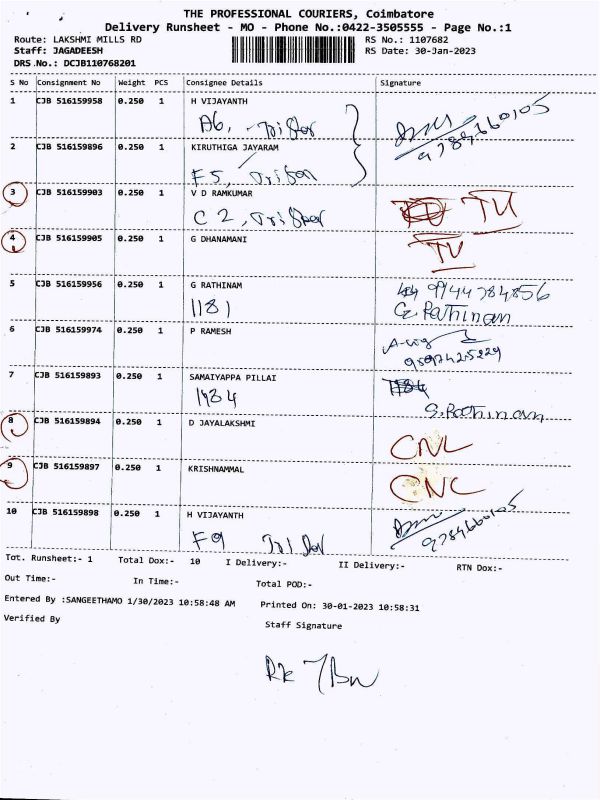 THE PROFESSIONAL COURIERS, Coimbatore
Delivery Runsheet - MO - Phone No.:0422-3505555 - Page No.:1
Route: LAKSHMI MILLS RD RS No.: 1107682
Staff: JAGADEESH RS Date: 30-Jan-2023
DRS.No.: DCJB110768201
S No Consignment No Weight PCS Consignee Details Signature
1 CJB 516159958 0.250 1 H VIJAYANTH
A6,
9784660105
2 CJB 516159896 0.250 1 KIRUTHIGA JAYARAM
F5,
3 CJB 516159903 0.250 1 V D RAMKUMAR TU
C 2,
4 CJB 516159905 0.250 1 G DHANAMANI TU
5 CJB 516159956 0.250 1 G RATHINAM 9944784856
1181 G. Rathinam
6 CJB 516159974 0.250 1 P RAMESH
7 CJB 516159893 0.250 1 SAMAIYAPPA PILLAI
1984 S. Rathinam
8 CJB 516159894 0.250 1 D JAYALAKSHMI
CNL
9 CJB 516159897 0.250 1 KRISHNAMMAL
CNC
10 CJB 516159898 0.250 1 H VIJAYANTH 9784660105
F9
Tot. Runsheet:- 1 Total Dox:- 10 I Delivery:- II Delivery:- RTN Dox:-
Out Time:- In Time:- Total POD:-
Entered By :SANGEETHAMO 1/30/2023 10:58:48 AM Printed On: 30-01-2023 10:58:31
Verified By Staff Signature